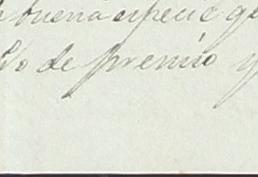 buena especie
de premio y